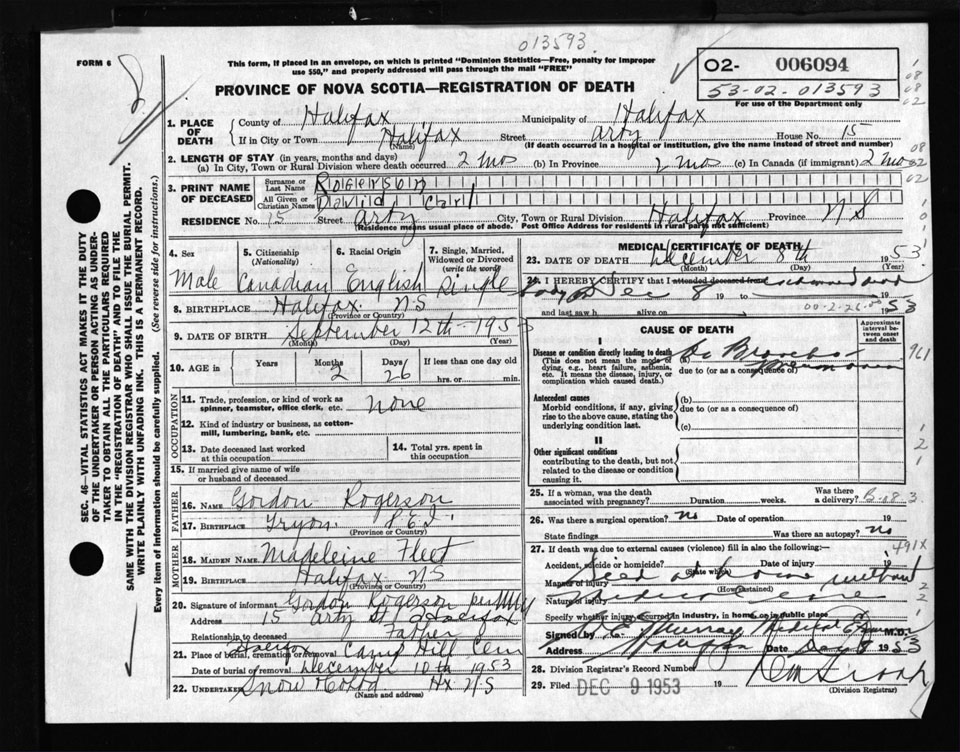 013593
FORM 6
This form, if placed in an envelope, on which is printed "Dominion Statistics—Free, penalty for improper
use $50," and properly addressed will pass through the mail "FREE"
O2- 006094
53-02-013593
For use of the Department only
PROVINCE OF NOVA SCOTIA—REGISTRATION OF DEATH
1. PLACE OF DEATH
County of Halifax Municipality of Halifax
If in City or Town Halifax Street Arty House No. 15
(Name) (If death occurred in a hospital or institution, give the name instead of street and number)
2. LENGTH OF STAY (in years, months and days)
(a) In City, Town or Rural Division where death occurred 2 mos (b) In Province 2 mos (c) In Canada (if immigrant) 2 mos
3. PRINT NAME OF DECEASED
Surname or Last Name Rogerson
All Given or Christian Names David Carl
RESIDENCE No. 15 Street Arty City, Town or Rural Division Halifax Province NS
(Residence means usual place of abode. Post Office Address for residents in rural parts not sufficient)
4. Sex
5. Citizenship (Nationality)
6. Racial Origin
7. Single, Married, Widowed or Divorced (write the word)
Male Canadian English Single
8. BIRTHPLACE Halifax NS
(Province or Country)
9. DATE OF BIRTH September 12th 1953
(Month) (Day) (Year)
10. AGE in Years Months 2 Days 26 If less than one day old
hrs. or min.
OCCUPATION
11. Trade, profession, or kind of work as spinner, teamster, office clerk, etc. none
12. Kind of industry or business, as cotton-mill, lumbering, bank, etc.
13. Date deceased last worked at this occupation
14. Total yrs. spent in this occupation
15. If married give name of wife or husband of deceased
FATHER
16. NAME Gordon Rogerson
17. BIRTHPLACE Tryon P.E.I.
(Province or Country)
MOTHER
18. MAIDEN NAME Madeleine Fleet
19. BIRTHPLACE Halifax NS
(Province or Country)
20. Signature of informant Gordon Rogerson per
Address 15 Arty St Halifax
Relationship to deceased Father
21. Place of burial, cremation or removal Halifax Camp Hill Cem
Date of burial or removal December 10th 1953
22. UNDERTAKER Snow Hx NS
(Name and address)
MEDICAL CERTIFICATE OF DEATH
23. DATE OF DEATH December 8th 1953
(Month) (Day) (Year)
24. I HEREBY CERTIFY that I attended deceased from
body Dec 8 19 to 1953
and last saw h alive on 00-2-26
CAUSE OF DEATH
Approximate interval between onset and death
I
Disease or condition directly leading to death (a) Broncho
(This does not mean the mode of dying, e.g., heart failure, asthenia, etc. It means the disease, injury, or complication which caused death.)
due to (or as a consequence of) pneumonia
Antecedent causes
Morbid conditions, if any, giving rise to the above cause, stating the underlying condition last.
(b)
due to (or as a consequence of)
(c)
II
Other significant conditions
contributing to the death, but not related to the disease or condition causing it.
25. If a woman, was the death associated with pregnancy? Duration weeks. Was there a delivery?
26. Was there a surgical operation? no Date of operation 19
State findings Was there an autopsy? no
491X
27. If death was due to external causes (violence) fill in also the following:—
Accident, suicide or homicide? Date of injury 19
(State which)
Manner of injury Died at home without
(How sustained)
Nature of injury medical care
Specify whether injury occurred in industry, in home or in public place
Signed by Murray Medical Ex M.D.
Address Halifax Date Dec 8 1953
28. Division Registrar's Record Number
29. Filed DEC 9 1953 19
(Division Registrar)
SEC. 46—VITAL STATISTICS ACT MAKES IT THE DUTY
OF THE UNDERTAKER OR PERSON ACTING AS UNDER-
TAKER TO OBTAIN ALL THE PARTICULARS REQUIRED
IN THE "REGISTRATION OF DEATH" AND TO FILE THE
SAME WITH THE DIVISION REGISTRAR WHO SHALL ISSUE THE BURIAL PERMIT.
WRITE PLAINLY WITH UNFADING INK. THIS IS A PERMANENT RECORD.
Every item of information should be carefully supplied. (See reverse side for instructions.)